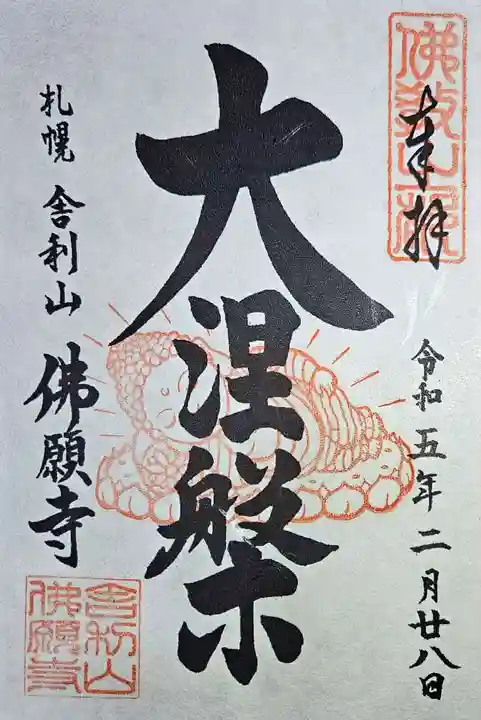 奉拝
令和五年二月廿八日
大涅槃
札幌 舎利山
佛願寺
舎利山
佛願寺